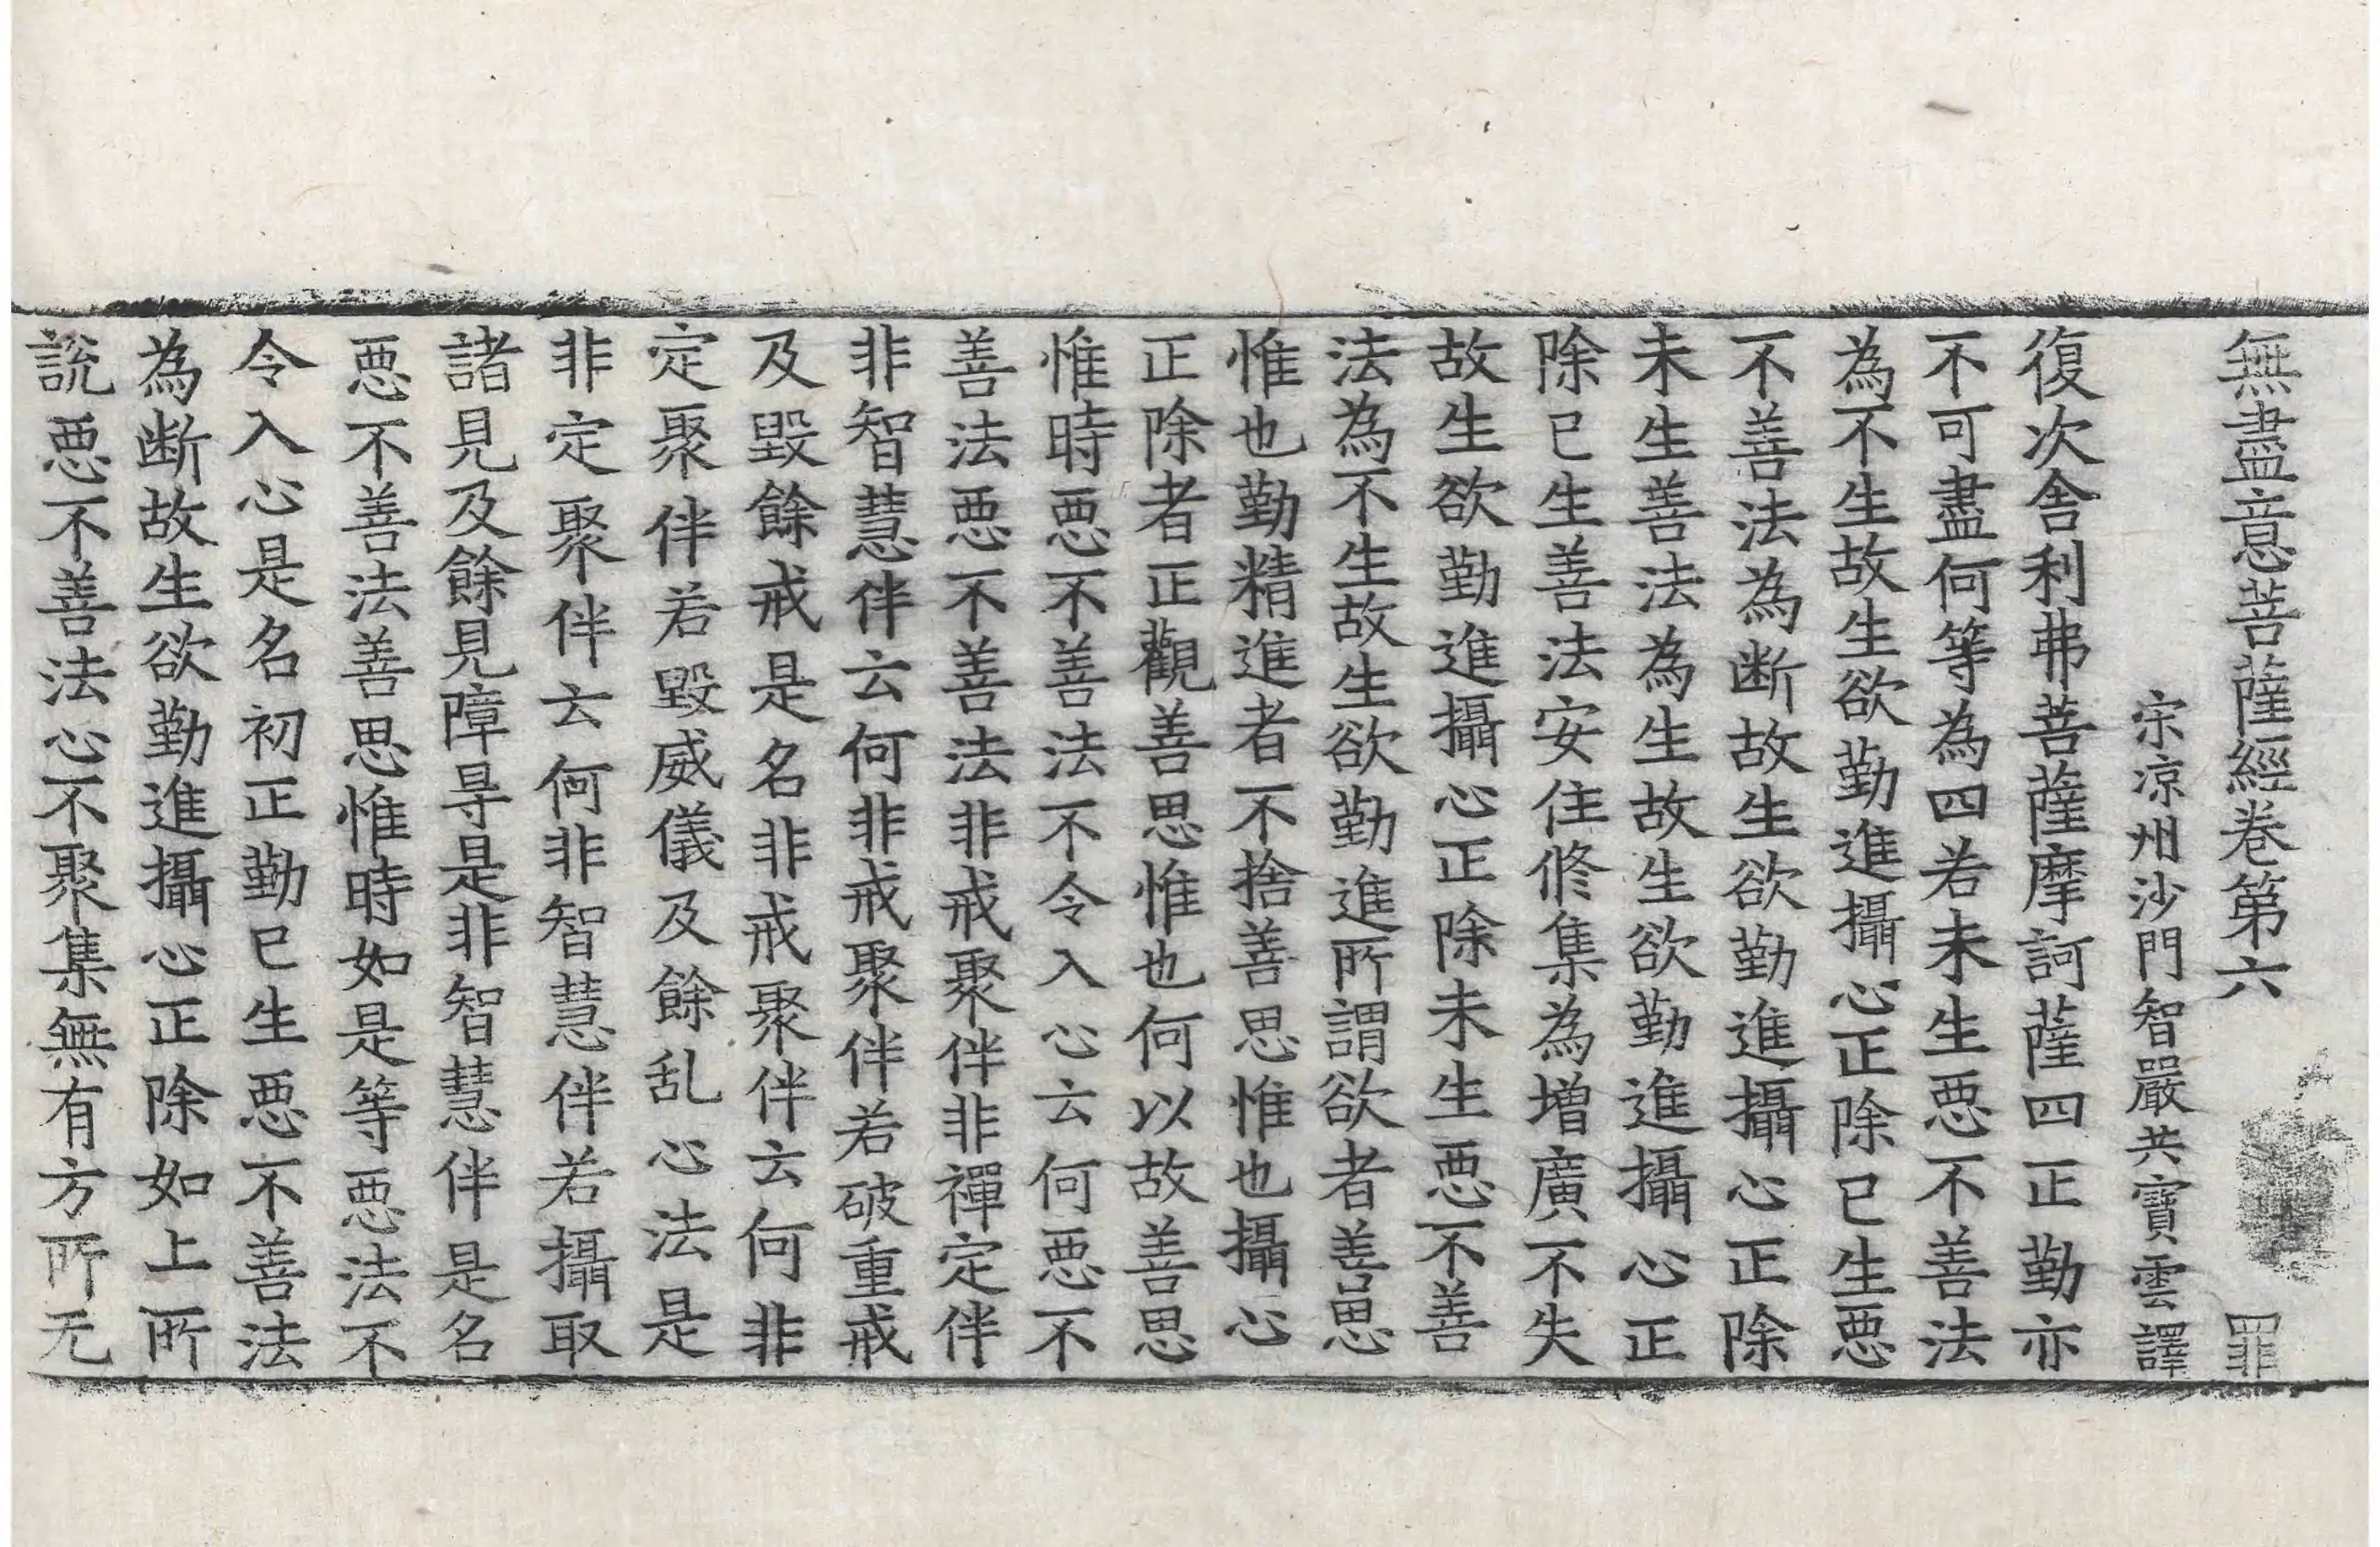 無盡意菩薩經卷第六 罪
宗涼州沙門智嚴共寶雲譯
復次舍利弗菩薩摩訶薩四正勤亦
不可盡何等為四若未生惡不善法
為不生故生欲勤進攝心正除已生惡
不善法為断故生欲勤進攝心正除
未生善法為生故生欲勤進攝心正
除已生善法安住修集為增廣不失
故生欲勤進攝心正除未生惡不善
法為不生故生欲勤進所謂欲者善思
惟也勤精進者不捨善思惟也攝心
正除者正觀善思惟也何以故善思
惟時惡不善法不令入心云何惡不
善法惡不善法非戒聚伴非禪定伴
非智慧伴云何非戒聚伴若破重戒
及毀餘戒是名非戒聚伴云何非
定聚伴若毀威儀及餘乱心法是
非定聚伴云何非智慧伴若攝取
諸見及餘見障㝵是非智慧伴是名
惡不善法善思惟時如是等惡法不
令入心是名初正勤已生惡不善法
為断故生欲勤進攝心正除如上所
說惡不善法心不聚集無有方所无